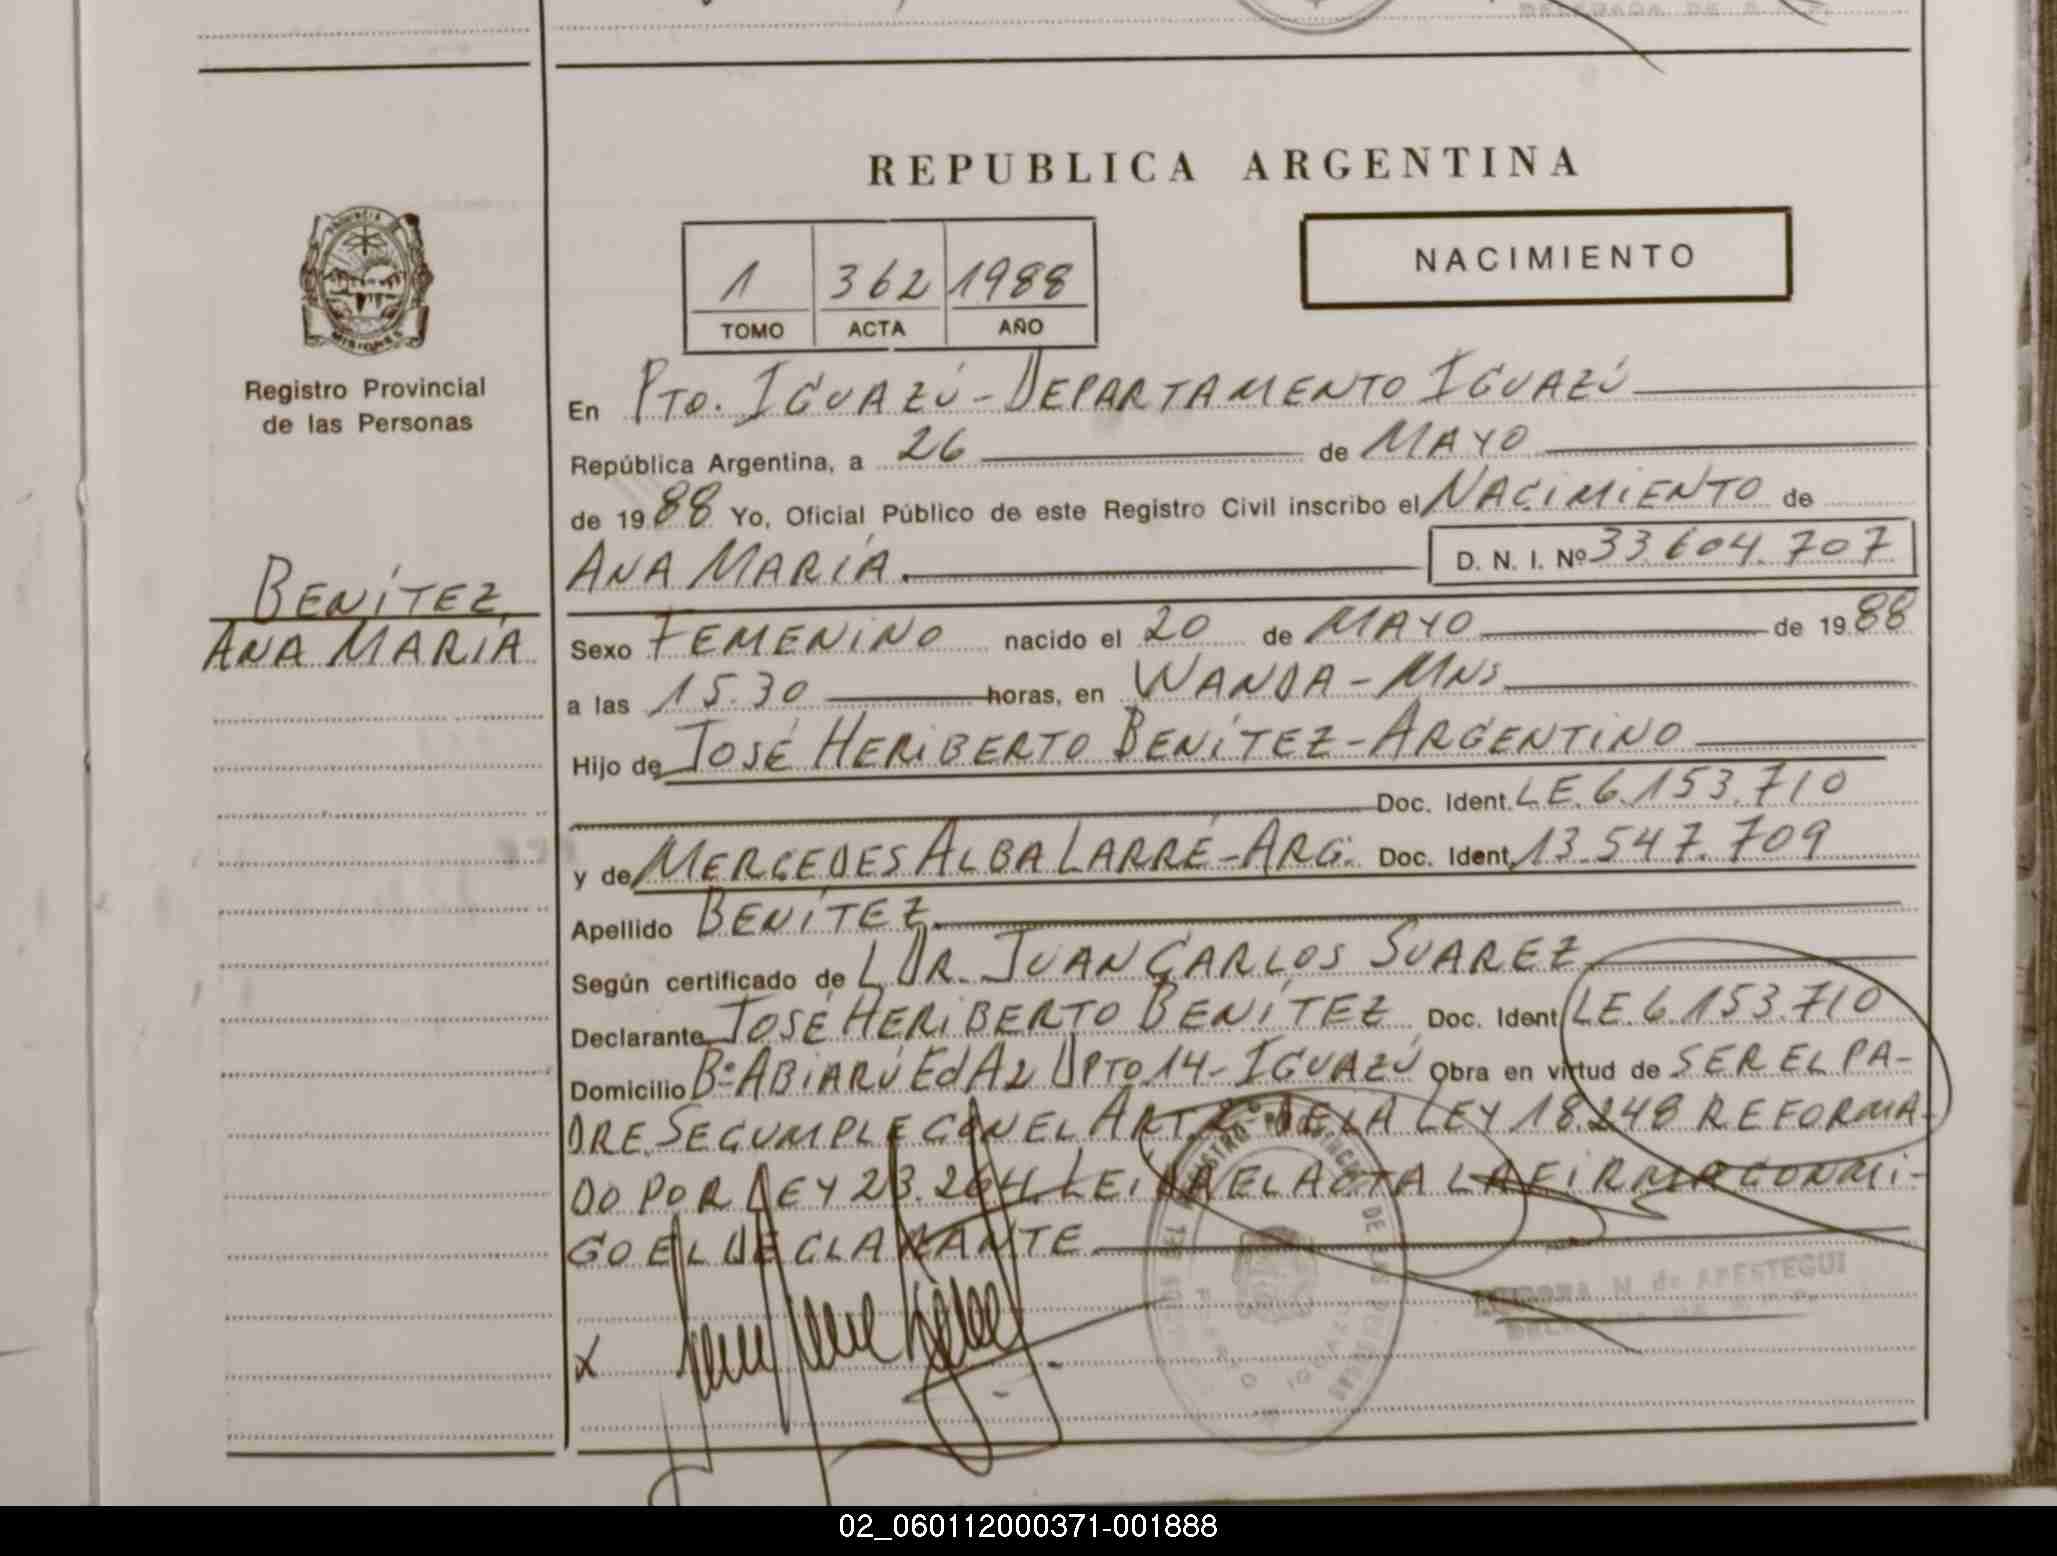 REPUBLICA ARGENTINA
NACIMIENTO
1 362 1988
TOMO ACTA AÑO
MISIONES
Registro Provincial
de las Personas
BENÍTEZ,
ANA MARÍA
En PTO. IGUAZÚ - DEPARTAMENTO IGUAZÚ
República Argentina, a 26 de MAYO
de 1988 Yo, Oficial Público de este Registro Civil inscribo el NACIMIENTO de
ANA MARÍA. D. N. I. Nº 33.604.707
Sexo FEMENINO nacido el 20 de MAYO de 1988
a las 15.30 horas, en WANDA - MNS
Hijo de JOSÉ HERIBERTO BENÍTEZ - ARGENTINO
Doc. Ident. LE. 6.153.710
y de MERCEDES ALBA LARRÉ - ARG. Doc. Ident. 13.547.709
Apellido BENÍTEZ
Según certificado de DR. JUAN CARLOS SUAREZ
Declarante JOSÉ HERIBERTO BENÍTEZ Doc. Ident. LE. 6.153.710
Domicilio Bº ABIARÚ Ed A2 DPTO 14 - IGUAZÚ Obra en virtud de SER EL PA-
DRE. SE CUMPLE CON EL ART. 2º DE LA LEY 18.248 REFORMA-
DO POR LEY 23.264. LEIDA EL ACTA LA FIRMA CONMI-
GO EL DECLARANTE
M. de APESTEGUI
X
02_060112000371-001888